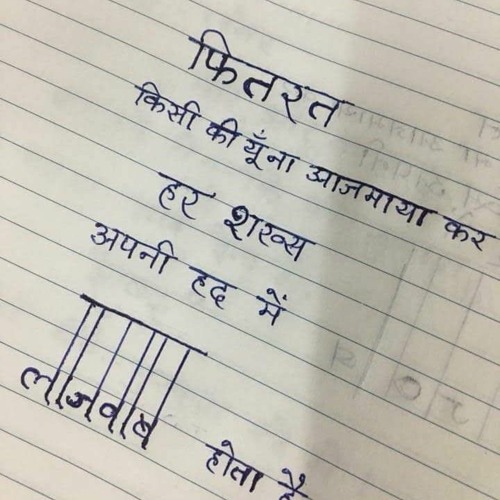 फितरत
किसी की यूँ ना आजमाया कर
हर शख्स
अपनी हद में
लाजवाब
होता है